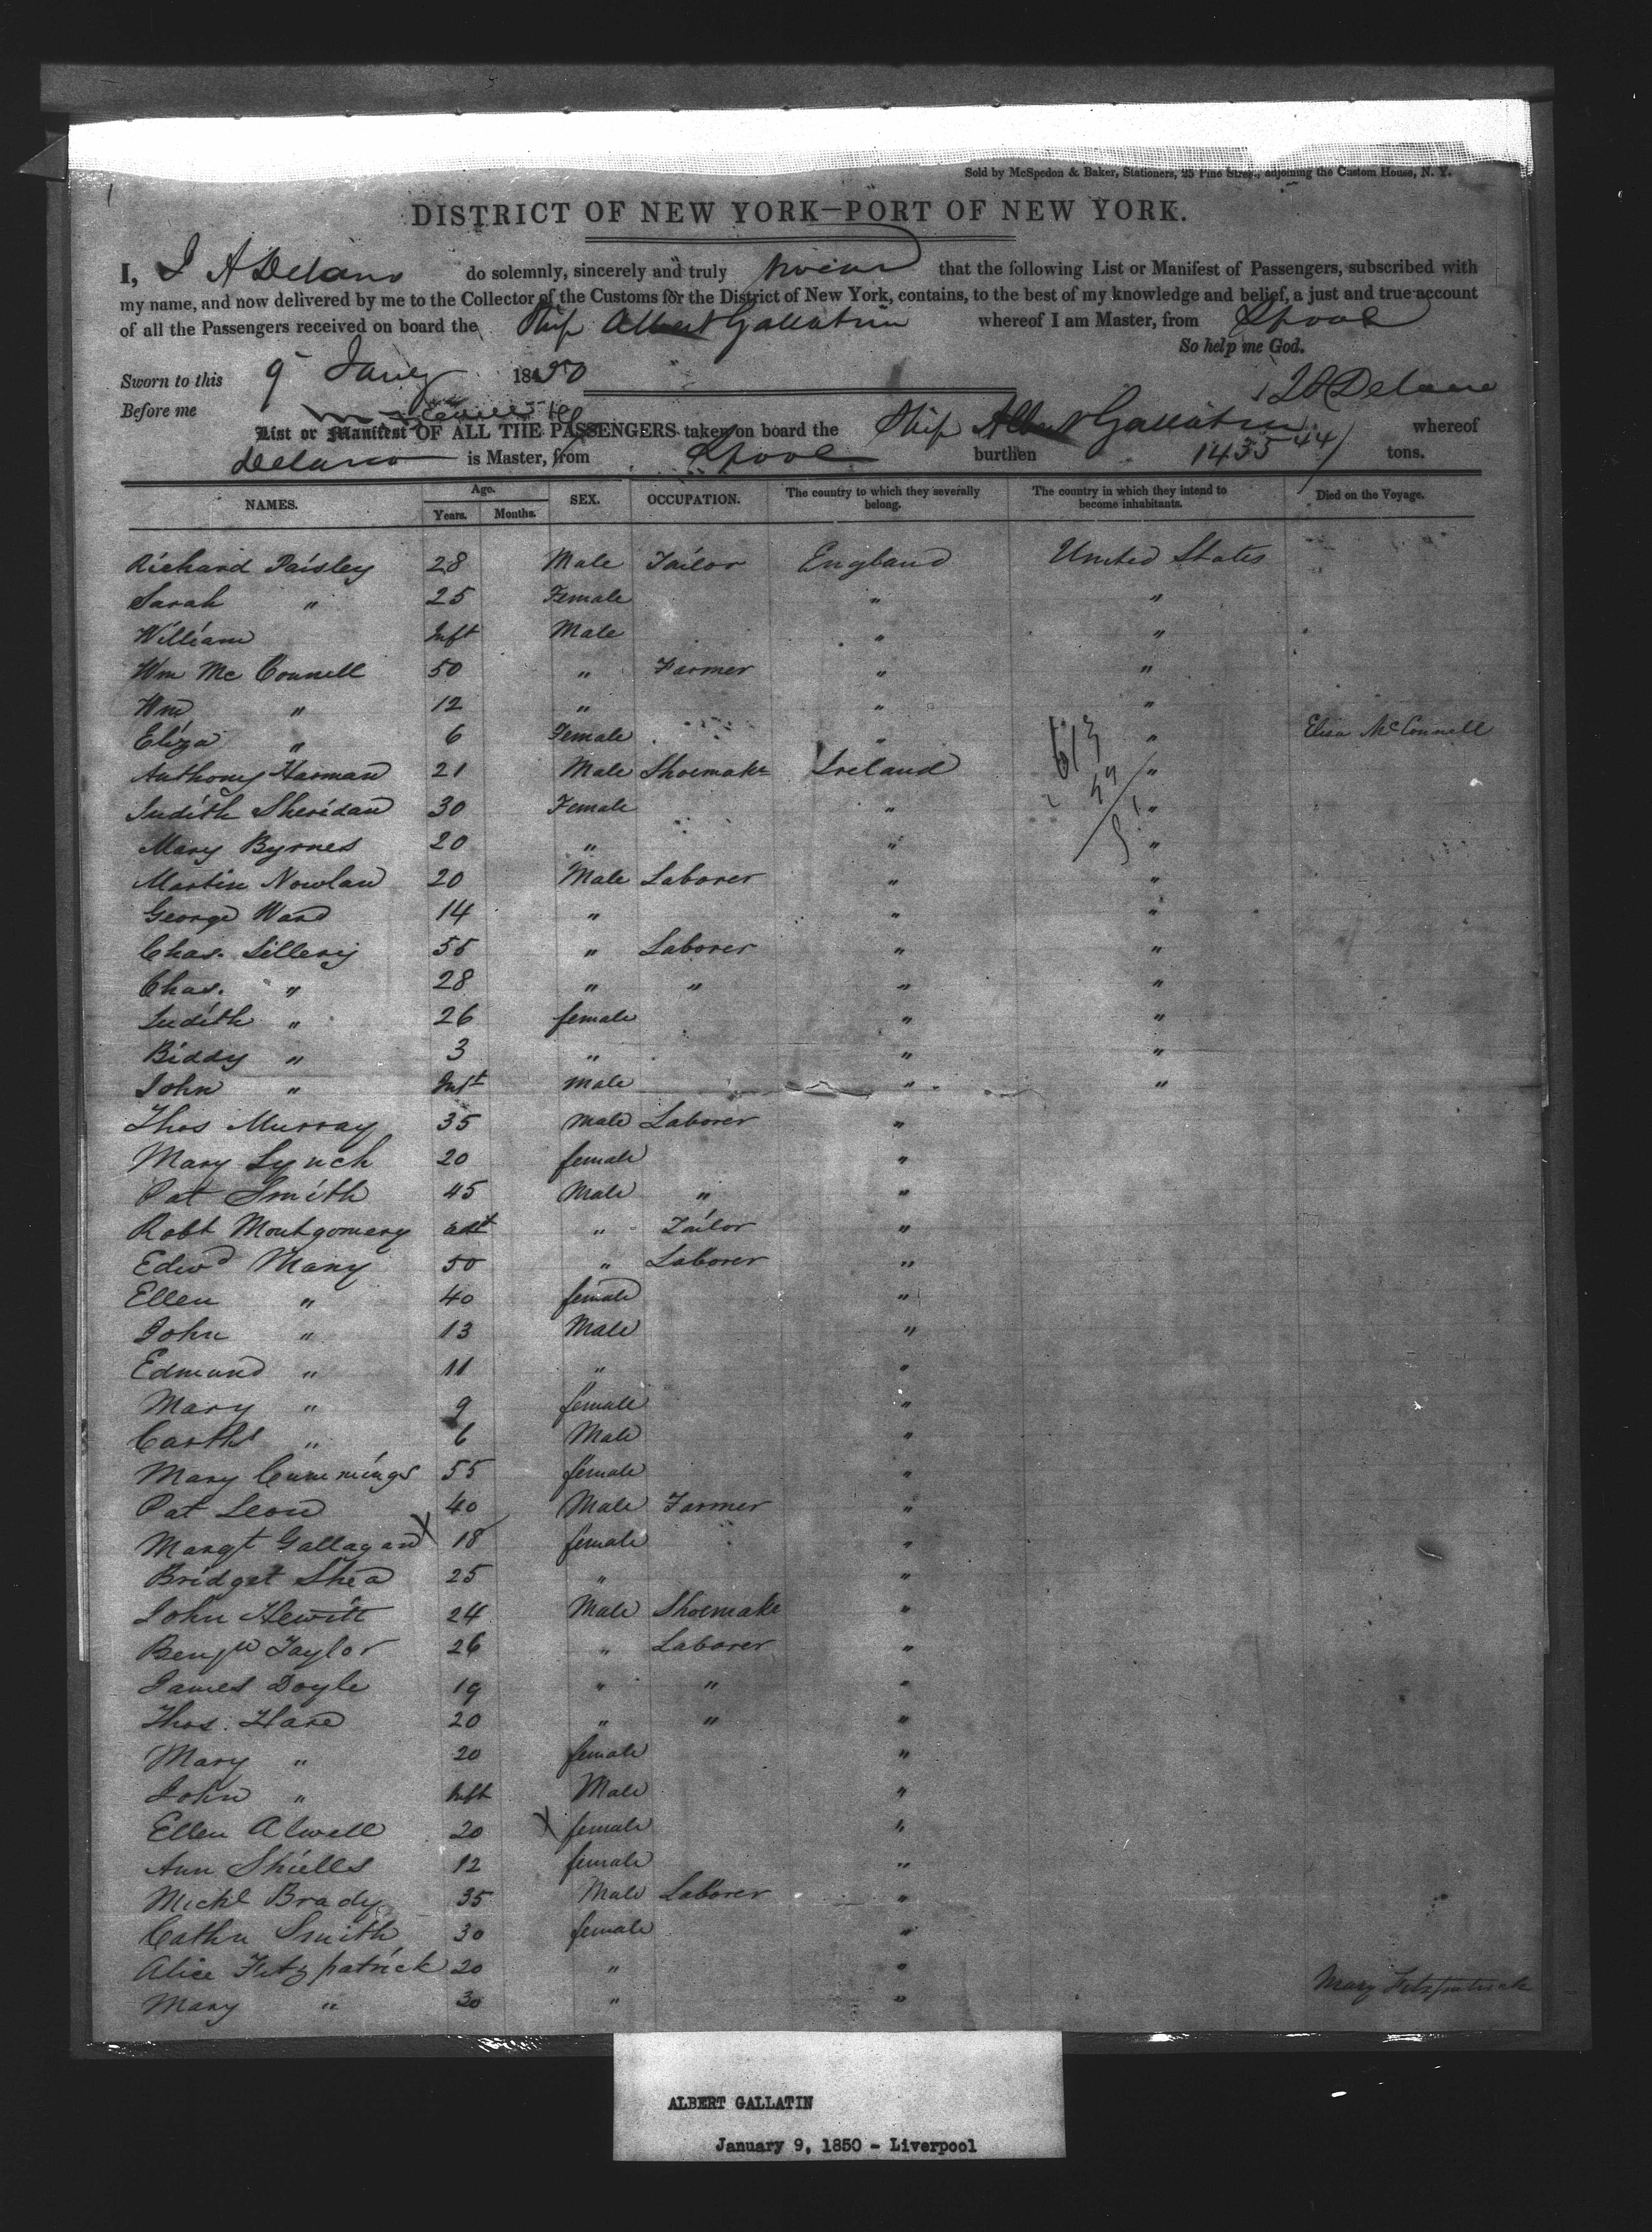 Sold by McSpedon & Baker, Stationers, 25 Pine Street, adjoining the Custom House, N. Y.
DISTRICT OF NEW YORK—PORT OF NEW YORK.
I, J A Delano do solemnly, sincerely and truly swear that the following List or Manifest of Passengers, subscribed with
my name, and now delivered by me to the Collector of the Customs for the District of New York, contains, to the best of my knowledge and belief, a just and true account
of all the Passengers received on board the Ship Albert Gallatin whereof I am Master, from Lpool
So help me God.
Sworn to this 9 Jany 1850
Before me J A Delano
List or Manifest OF ALL THE PASSENGERS taken on board the Ship Albert Gallatin whereof
Delano is Master, from Lpool burthen 1435 44/ tons.
NAMES. Age. Years. Months. SEX. OCCUPATION. The country to which they severally belong. The country in which they intend to become inhabitants. Died on the Voyage.
Richard Paisley 28 Male Tailor England United States
Sarah " 25 Female " "
William Inft Male " "
Wm Mc Connell 50 " Farmer " "
Wm " 12 " " "
Eliza " 6 Female " " Eliza McConnell
Anthony Harman 21 Male Shoemakr Ireland "
Judith Sheridan 30 Female " "
Mary Byrnes 20 " " "
Martin Nowlan 20 Male Laborer " "
George Ward 14 " " "
Chas. Lillery 55 " Laborer " "
Chas. " 28 " " " "
Judith " 26 female " "
Biddy " 3 " " "
John " Inft male " "
Thos Murray 35 male Laborer "
Mary Lynch 20 female "
Pat Smith 45 Male " "
Robt Montgomery adt " Tailor "
Edwd Many 50 " Laborer "
Ellen " 40 female "
John " 13 Male "
Edmund " 11 " "
Mary " 9 female "
Carths " 6 Male "
Mary Cummings 55 female "
Pat Leon 40 Male Farmer "
Margt Gallagan X 18 female "
Bridget Shea 25 " "
John Hewitt 24 Male Shoemake "
Benjn Taylor 26 " Laborer "
James Doyle 19 " " "
Thos. Hare 20 " " "
Mary " 20 female "
John " Inft Male "
Ellen Alwell 20 X female "
Ann Shiells 12 female "
Michl Brady 35 Male Laborer "
Cathn Smith 30 female "
Alice Fitzpatrick 20 " "
Mary " 30 " " Mary Fitzpatrick
ALBERT GALLATIN
January 9, 1850 - Liverpool